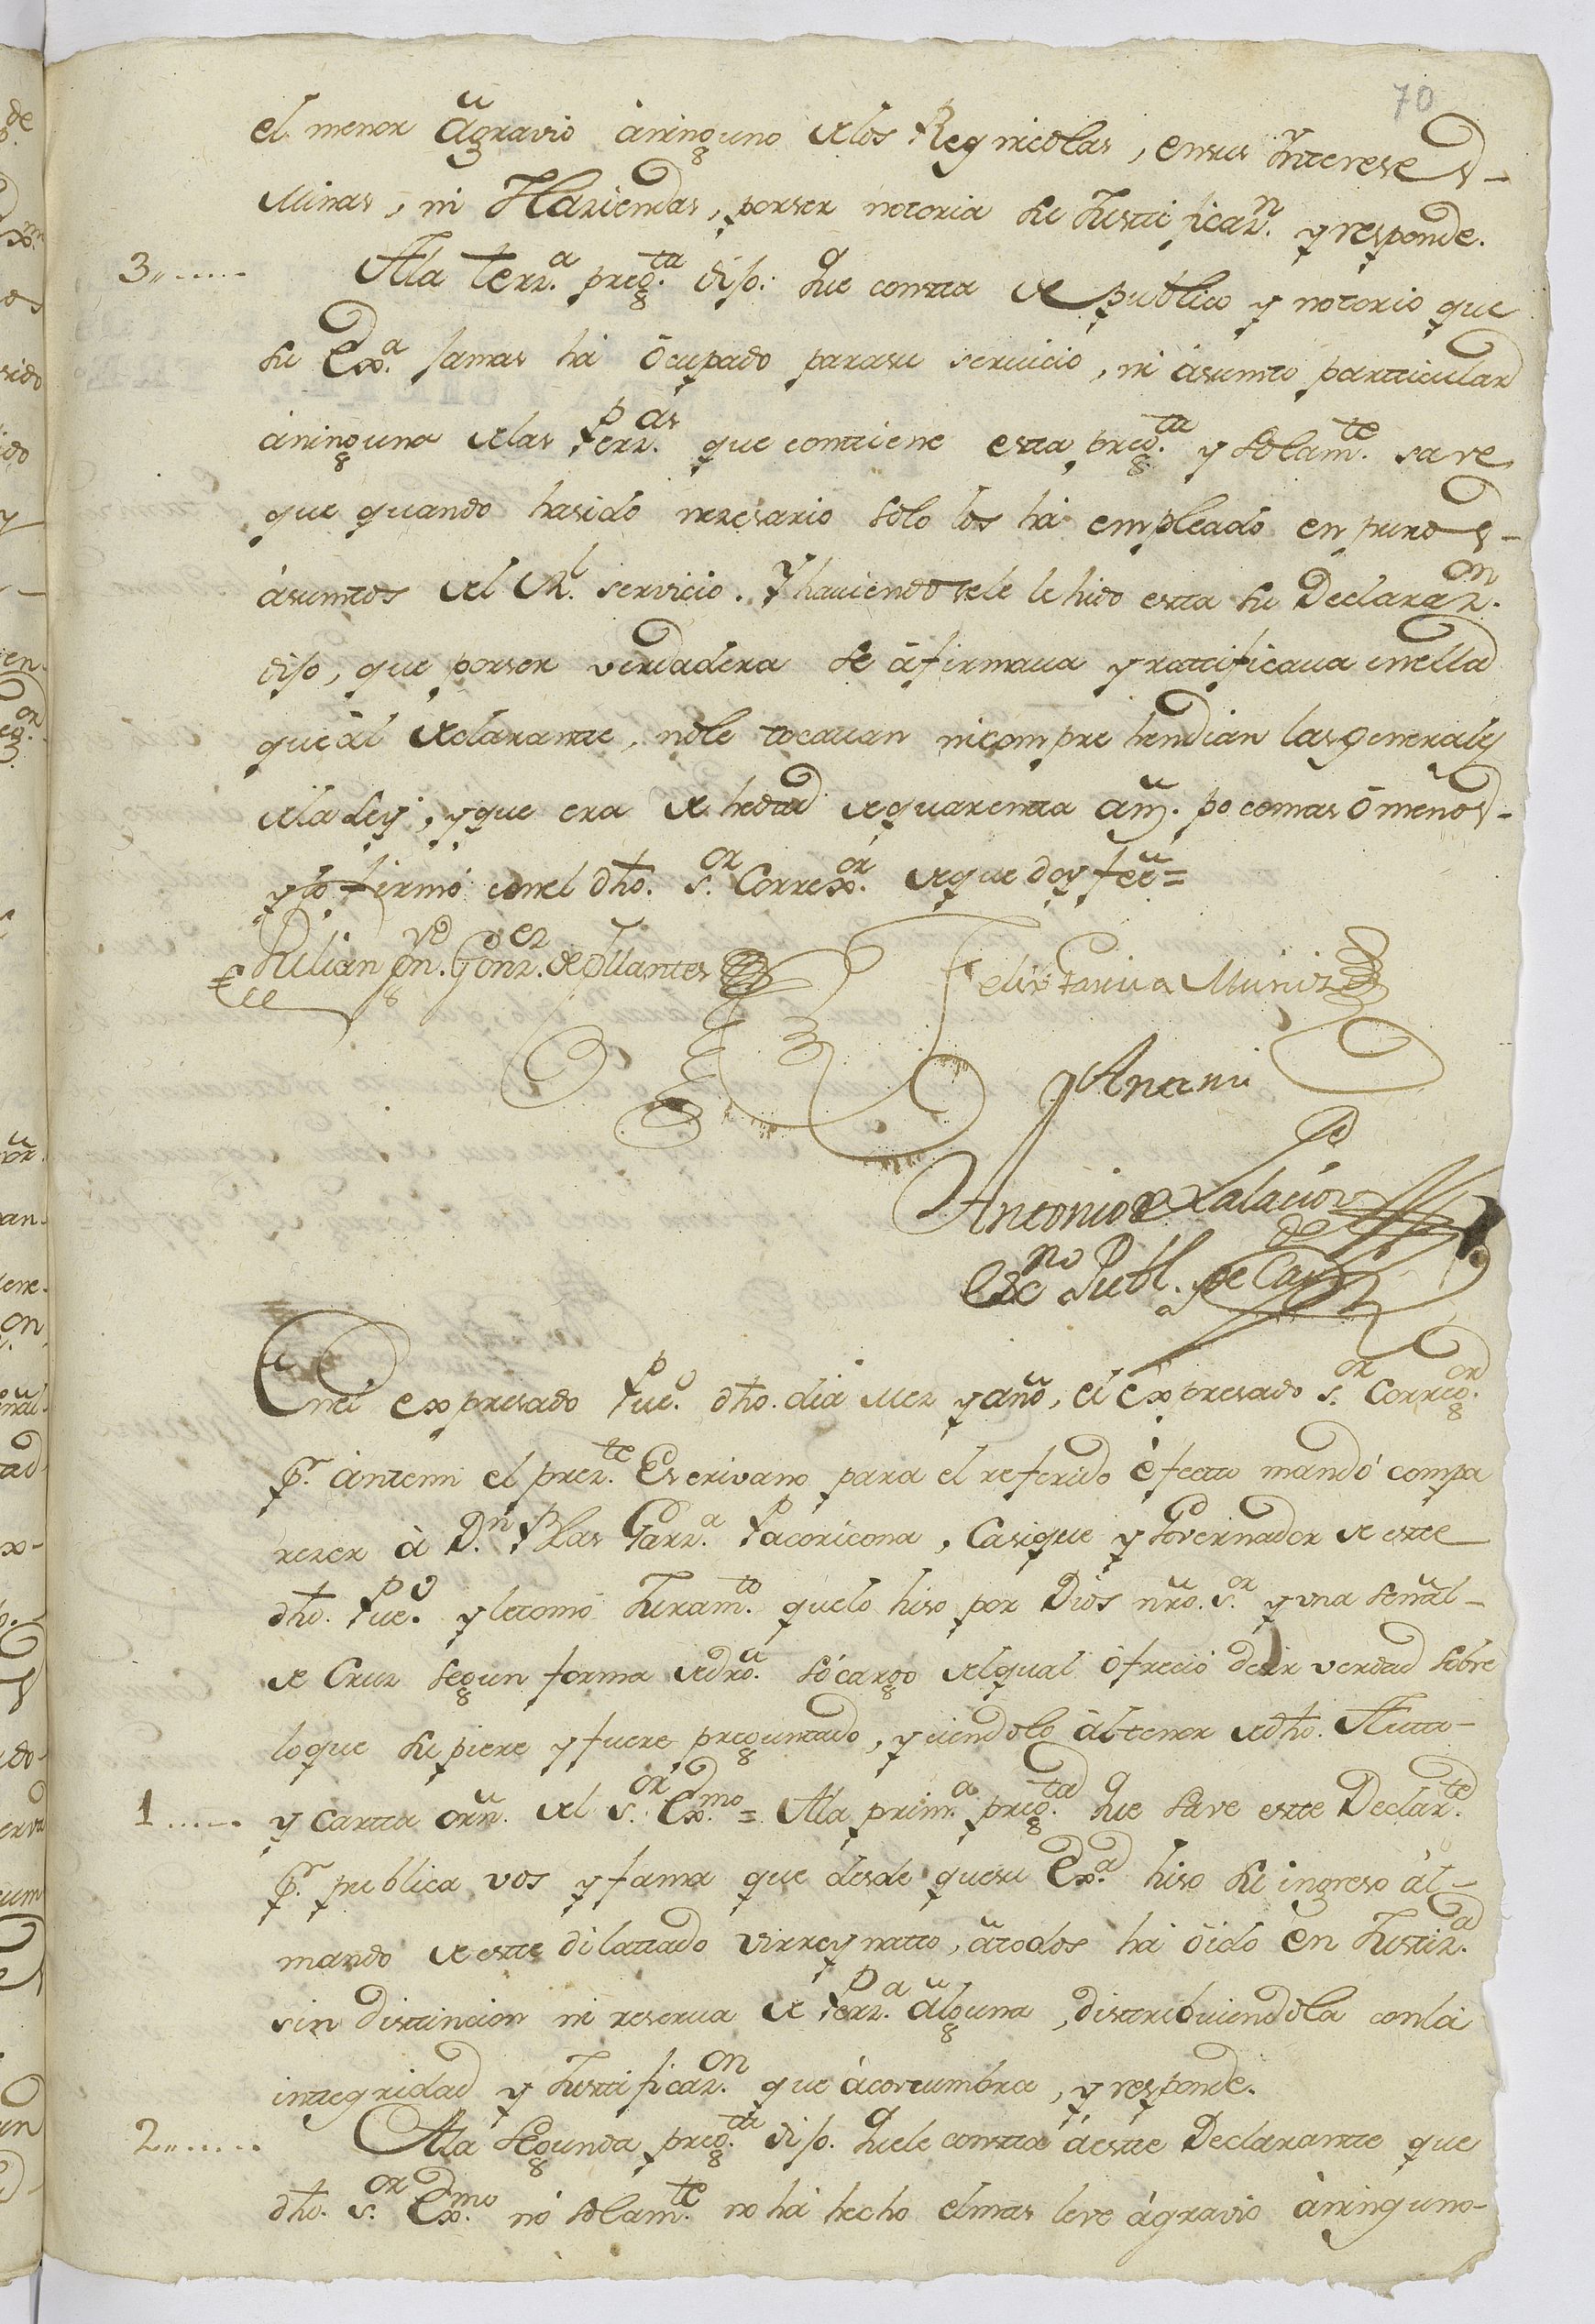 70
el menor agravio àninguno delos Regnicolas, ensus Intereses -
Minas, ni Haziendas, porser notoria su Justificaz.n y responde.
3,,...... Ala terz.a preg.ta dijo: Que consta de publico y notorio que
su Ex.a Jamas hà ócupado parasu servicio, ni àsumto particular
àninguna delas Perz.as que contiene esta preg.ta y solam.te save
que quando hasido nezesario solo los hà empleado en puros -
ásumtos del R.l servicio. Y haviendosele lehido esta su Declaraz.on
dijo, que porser verdadera se àfirmava y ratificava enella
queàl declarante, nole tocavan nicomprehendian lasgenerales
dela Ley, yque era de hedad dequarenta añ.s pocomas ò menos -
ylo firmò conel dho. S.or Correx.or deque doy feé =
Julian Gonz.ez de
Felix Munis
Antemi
Antonio de Palacios
Esc.no Publ.
Enel expresado Pue.o dho. dia Mez y año, el expresado S.or Correg.or
p.r àntemi el prez.te Escrivano para el referido èfecto mandó compa
rezer à D.n Blas Garz.a Pacoricona, Casique y Governador de este
dho. Pue.o yletomó Juram.to quelo hiso por Dios nro. S.or y una señal -
de Cruz segun forma dedro. sócargo delqual òfreció dezir verdad sobre
loque supiere y fuere preguntado, y siendolo àltenor dedho. Autto -
1...... y cartta orn. del S.or Ex.mo = Ala prim.a preg.ta Que save este Declar.te
p.r publica vos y fama que desde quesu Ex.a hiso su ingreso àl -
mando de este dilattado Virreynatto, àtodos hà óido en Justiz.a
sin distincion ni reserva de Perz.a àlguna, distribuiendola conla
integridad y Justificaz.on que àcostumbra, y responde.
2,,...... Ala segunda preg.ta dijo. Quele consta àeste Declarante que
dho. S.or Ex.mo nó solam.te no hà hecho elmas leve àgravio àninguno -